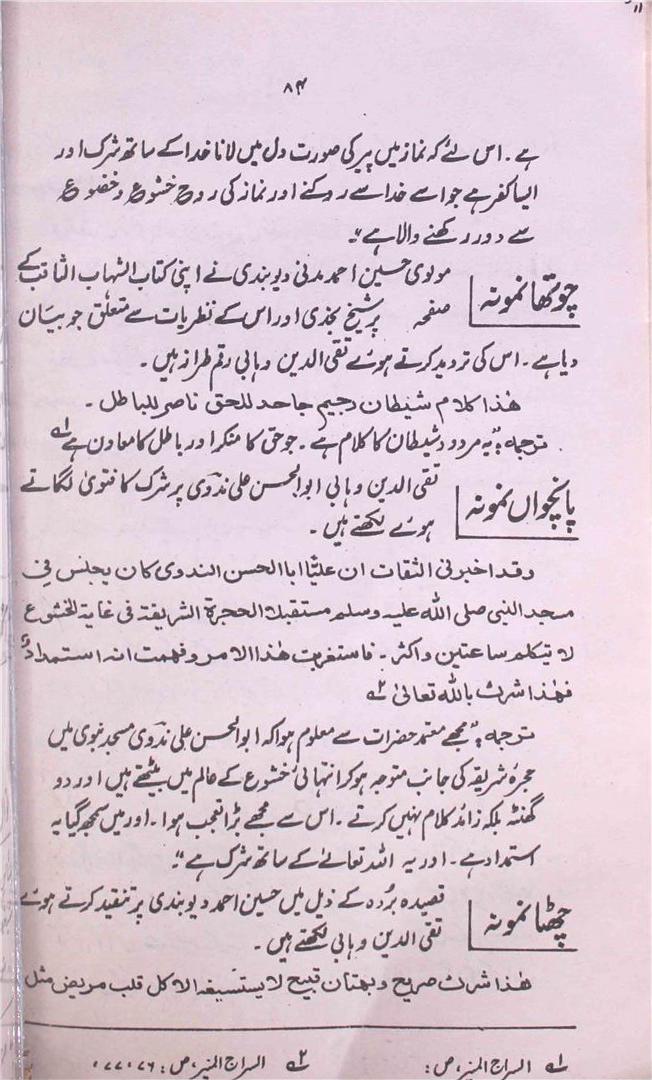 ۸۴
ہے ۔ اس لئے کہ نماز میں پیر کی صورت دل میں لانا خدا کے ساتھ شرک اور
ایسا کفر ہے جو اسے خدا سے روکنے اور نماز کی روح خشوع و خضوع
سے دور رکھنے والا ہے"۔
چوتھا نمونہ
مولوی حسین احمد مدنی دیوبندی نے اپنی کتاب الشہاب الثاقب کے
صفحہ پر شیخ نجدی اور اس کے نظریات سے متعلق جو بیان
دیا ہے ۔ اس کی تردید کرتے ہوئے تقی الدین وہابی رقم طراز ہیں ۔
ھٰذا کلام شیطان رجیم جاحد للحق ناصر للباطل ۔
ترجمہ : "یہ مردود شیطان کا کلام ہے ۔ جو حق کا منکر اور باطل کا معاون ہے" ۱؎
پانچواں نمونہ
تقی الدین وہابی ابوالحسن علی ندوی پر شرک کا فتویٰ لگاتے
ہوئے لکھتے ہیں ۔
وقد اخبرنی الثقات ان علیًّا ابا الحسن الندوی کان یجلس فی
مسجد النبی صلی اللہ علیہ وسلم مستقبلا الحجرۃ الشریفۃ فی غایۃ الخشوع
لا یتکلم ساعتین واکثر ۔ فاستغربت ھٰذا الامر وفھمت انہ استمداد
فھٰذا شرک باللہ تعالیٰ ۲؎
ترجمہ : "مجھے معتمد حضرات سے معلوم ہوا کہ ابوالحسن علی ندوی مسجد نبوی میں
حجرۂ شریفہ کی جانب متوجہ ہو کر انتہائی خشوع کے عالم میں بیٹھتے ہیں اور دو
گھنٹہ بلکہ زائد کلام نہیں کرتے ۔ اس سے مجھے بڑا تعجب ہوا ۔ اور میں سمجھ گیا یہ
استمداد ہے ۔ اور یہ اللہ تعالیٰ کے ساتھ شرک ہے"۔
چھٹا نمونہ
قصیدہ بردہ کے ذیل میں حسین احمد دیوبندی پر تنقید کرتے ہوئے
تقی الدین وہابی لکھتے ہیں ۔
ھٰذا شرک صریح وبھتان قبیح لا یستسیغہ الا کل قلب مریض مثل
۱؎ السراج المنیر ، ص : ۲؎ السراج المنیر ، ص : ۷۶ ، ۷۷